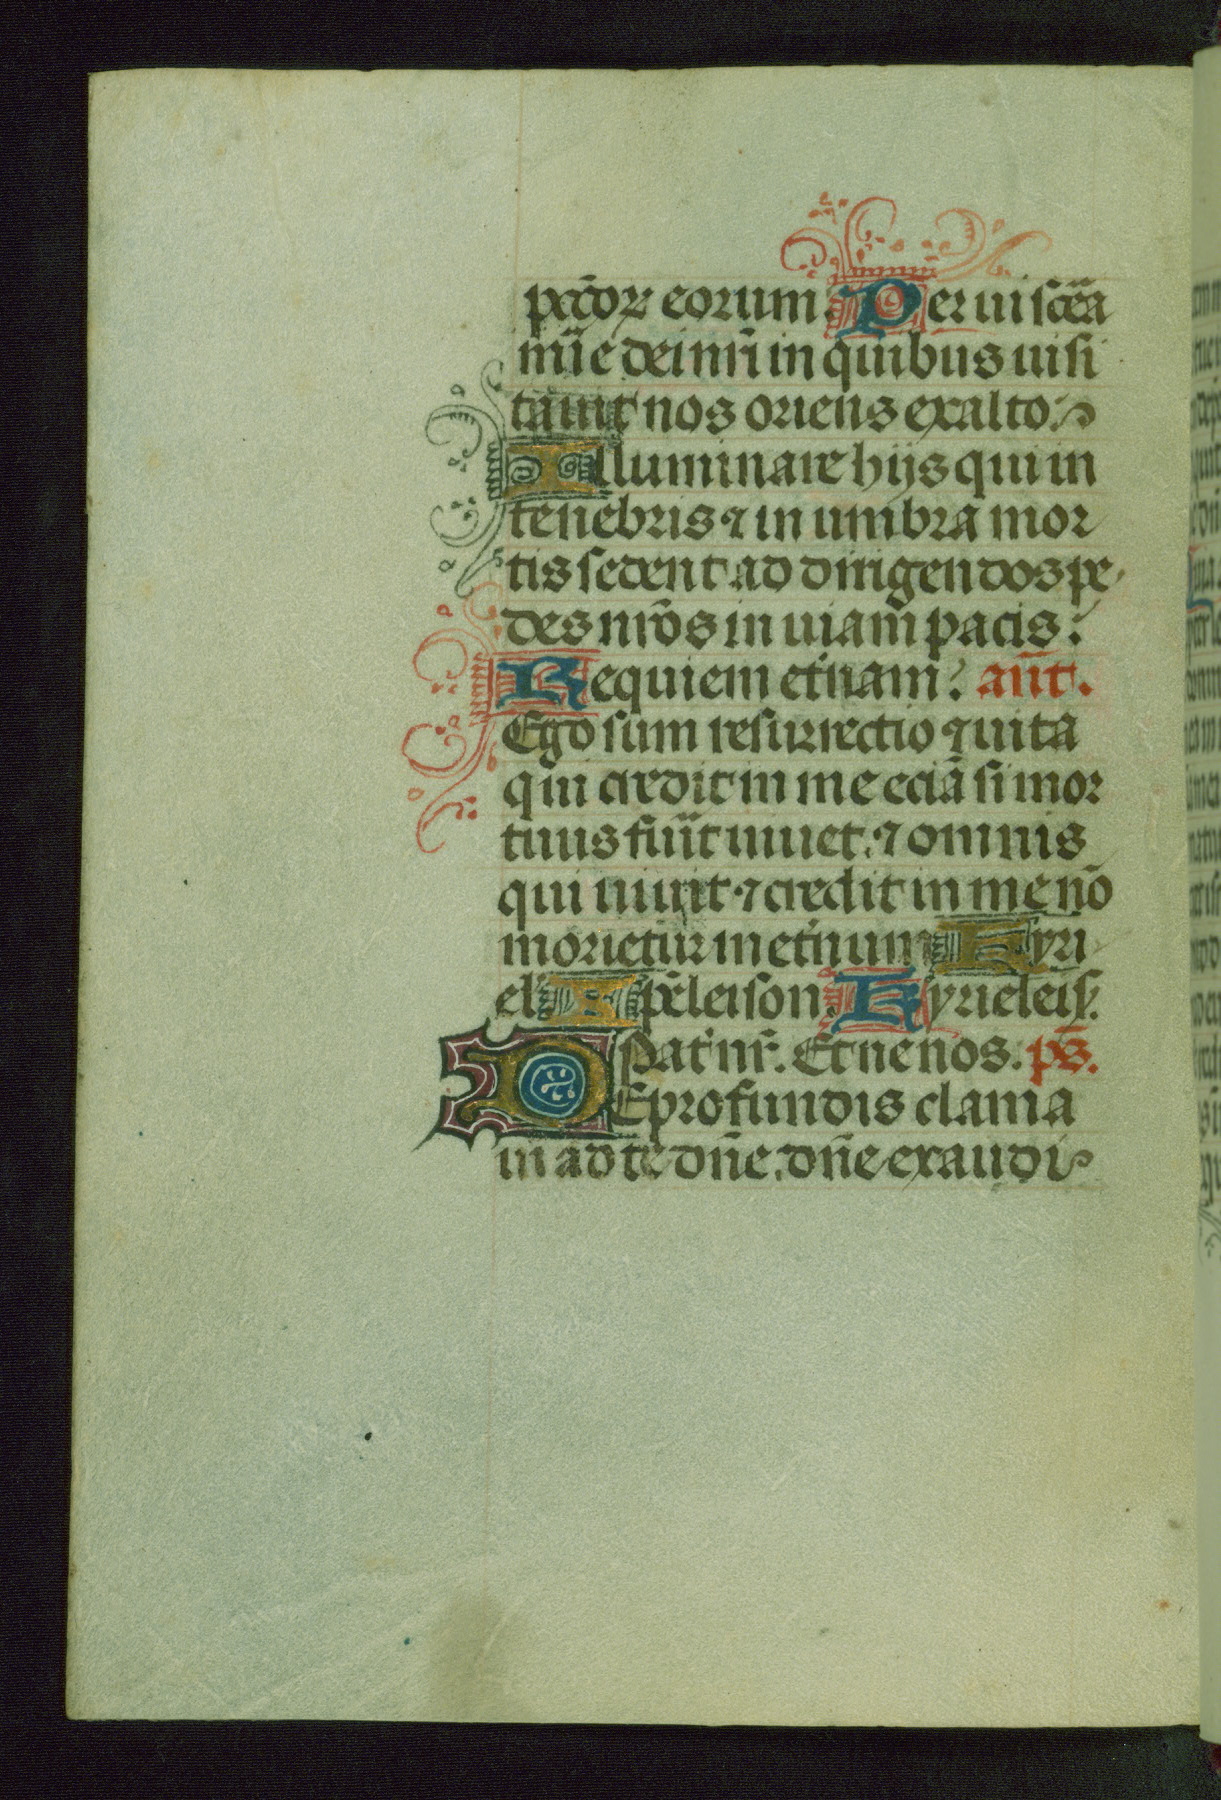 pctōꝝ eorum. Per uiscēa
mīe dei nr̄i in quibus uisi
tauit nos oriens ex alto.
Illuminare hijs qui in
tenebris ⁊ in umbra mor
tis sedent ad dirigendos pe
des nr̄os in uiam pacis.
Requiem et'nam. ant̄.
Ego sum resurrectio ⁊ uita
qui credit in me eciā si mor
tuus fu'it uiuet. ⁊ omnis
qui uiuit ⁊ credit in me nō
morietur in et'num Kyri
el' Xp̄eleison. Kyrieleis.
Pat' nr̄. Et ne nos. ps̄.
DE profundis clama
ui ad te dn̄e, dn̄e exaudi